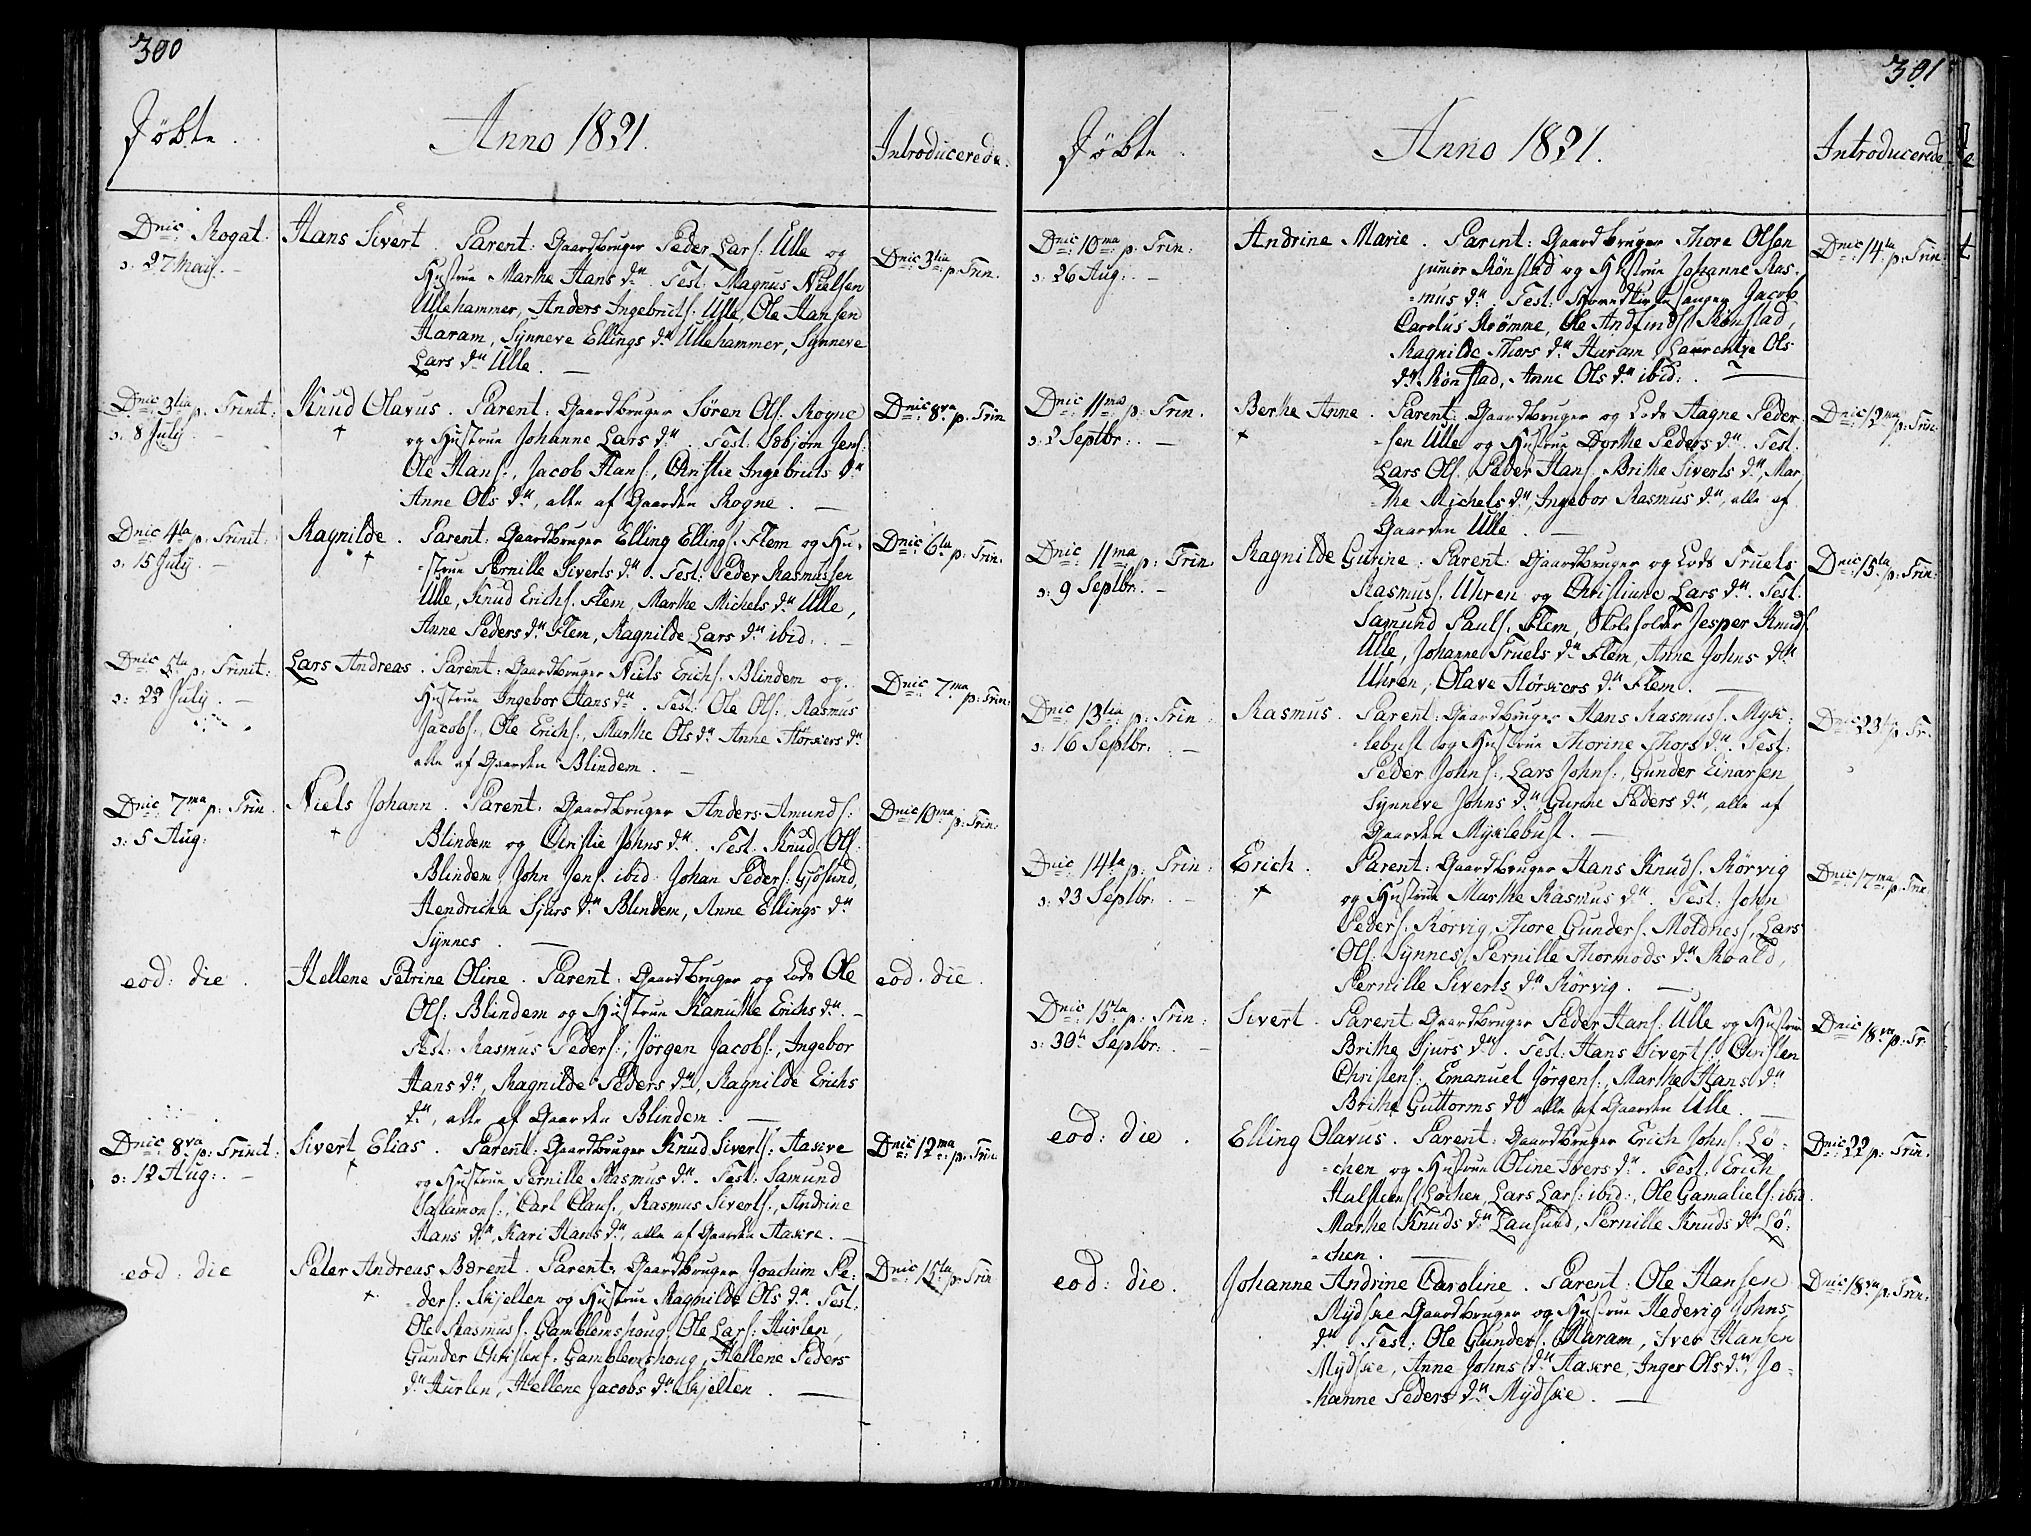 300
Døbte.
Anno 1821.
Introducerede.
Dnic: Rogat:
ɔ: 27 Maij. —
Hans Sivert. Parent: Gaardbruger Peder Lars: Ulle og
Hustrue Marthe Hans dr. Test: Magnus Nielsen
Ullehammer, Anders Ingebrits: Ulle, Ole Hansen
Haram, Synneve Ellings dr Ullehammer, Synneve
Lars dr Ulle. —
Dnic: 3tia p: Trin:
Dnic: 3tia p: Trinit:
ɔ: 8 July. —
Knud Olavus. Parent: Gaardbruger Søren Ols: Rogne
og Hustrue Johanne Lars dr. Test: Esbjørn Jens:
Ole Hans:, Jacob Hans:, Christie Ingebrits dr
Anne Ols dr, alle af Gaarden Rogne. —
Dnic: 8va p: Trin
Dnic: 4ta p: Trinit:
ɔ: 15 July. —
Ragnilde. Parent: Gaardbruger Elling Ellings: Flem og Hu-
-strue Pernille Siverts dr. Test: Peder Rasmussen
Ulle, Knud Erichs: Flem, Marthe Michels dr Ulle,
Anne Peders dr Flem, Ragnilde Lars dr ibid: —
Dnic: 6ta p: Trin:
Dnic: 5ta p: Trinit:
ɔ: 22 July. —
Lars Andreas. Parent: Gaardbruger Niels Erichs: Blindem og
Hustrue Ingebor Hans dr. Test: Ole Ols:, Rasmus
Jacobs:, Ole Erichs:, Marthe Ols dr Anne Størkers dr
alle af Gaarden Blindem. —
Dnic 7ma p: Trin:
Dnic: 7ma p: Trin.
ɔ: 5 Aug:
Niels Johann. Parent: Gaardbruger Anders Amunds:
Blindem og Christie Johns dr. Test: Knud Ols:
Blindem John Jens: ibid: Johan Peders: Gjøsund,
Hendricha Sjurs dr Blindem, Anne Ellings dr
Synnes. —
Dnic: 10ma p: Trin:
eod: die.
Hellene Petrine Oline. Parent: Gaardbruger og Lods Ole
Ols: Blindem og Hustrue Kanutte Erichs dr. —
Test: Rasmus Peders:, Jørgen Jacobs:, Ingebor
Hans dr, Ragnilde Peders dr, Ragnilde Erichs
dr, alle af Gaarden Blindem. —
eod: die.
Dnic: 8va p: Trinit:
ɔ: 12 Aug: —
Sivert Elias. Parent: Gaardbruger Knud Siverts: Aakre
og Hustrue Pernille Rasmus dr. Test: Samund
Salamons:, Carl Claus:, Rasmus Siverts:, Andrine
Hans dr, Kari Hans dr, alle af Gaarden Aakre. —
Dnic: 12ma p: Trin
eod: die
Peter Andreas Bærent. Parent: Gaardbruger Joachim Pe-
-ders: Skjelten og Hustrue Ragnilde Ols dr. Test:
Ole Rasmus: Gamblemshoug, Ole Lars: Hurlen,
Gunder Christens: Gamblemshoug, Hellene Peders
dr Hurlen, Hellene Jacobs dr Skjelten. —
Dnic: 15ta p: Trin
301
Døbte.
Anno 1821.
Introducerede
Dnic: 10ma p: Trin:
ɔ: 26 Aug: —
Andrine Marie. Parent: Gaardbruger Thore Olsen
junior Rønstad og Hustrue Johanne Ras-
-mus dr. Test: Jacob
Carolus Strømme, Ole Andfinds: Rønstad,
Ragnilde Thors dr Haram, Laurentze Ols
dr Rønstad, Anne Ols dr ibid: —
Dnic: 14ta p: Trin:
Dnic: 11ma p: Trin.
ɔ: 2 Septbr: —
Berthe Anne. Parent: Gaardbruger og Lods Aagne Peder-
-sen Ulle og Hustrue Dorthe Peders dr. Test:
Lars Ols: Peder Hans:, Brithe Siverts dr, Mar-
-the Michels dr, Ingebor Rasmus dr, alle af
Gaarden Ulle. —
Dnic: 12ma p: Trin.
Dnic: 11ma p: Trin
ɔ: 9 Septbr. —
Ragnilde Gurine. Parent: Gaardbruger og Lods Truels
Rasmus: Uhren og Christiane Lars dr. Test:
Samund Pauls: Flem, Skoleholder Jesper Knuds:
Ulle, Johanne Truels dr Flem, Anne Johns dr
Uhren, Olave Størkers dr Flem. —
Dnic: 15ta p: Trin:
Dnic: 13tia p: Trin:
ɔ: 16 Septbr: —
Rasmus. Parent: Gaardbruger Hans Rasmus: Myk-
-lebust og Hustrue Thorine Thors dr. Test:
Peder Johns:, Lars Johns:, Gunder Einarsen,
Synneve Johns dr, Gurine Peders dr, alle af
Gaarden Myklebust. —
Dnic: 23 p: Tr.
Dnic: 14ta p: Trin:
ɔ: 23 Septbr: —
Erich. Parent: Gaardbruger Hans Knuds: Rørvig
og Hustrue Marthe Rasmus dr. Test: John
Peders: Rørvig, Thore Gunders: Moldnes, Lars
Ols: Synnes, Pernille Thormods dr Roald,
Pernille Siverts dr Rørvig. —
Dnic: 17ma p: Trin:
Dnic: 15ta p: Trin:
ɔ: 30te Septbr: —
Sivert. Parent: Gaardbruger Peder Hans: Ulle og Hustrue
Brithe Sjurs dr. Test: Hans Siverts: Christen
Christens:, Emanuel Jørgens:, Marthe Hans dr
Brithe Guttorms dr alle af Gaarden Ulle. —
Dnic: 18va p: Tr:
eod: die.
Elling Olavus. Parent: Gaardbruger Erich Johns: Lø-
-chen og Hustrue Oline Ivers dr. Test: Erich
Halsteens: Løchen, Lars Lars: ibid:, Ole Gamaliels: ibid.
Marthe Knuds dr Lausund, Pernille Knuds dr Lø-
-chen. —
Dnic: 22 p: Trin.
eod: die.
Johanne Andrine Caroline. Parent: Ole Hansen
Mydske Gaardbruger og Hustrue Hedevig Johns
dr. Test: Ole Gunders: Haram, Iver Hansen
Mydske, Anne Johns dr Aakre, Inger Ols dr, Jo-
-hanne Peders dr Mydske. —
Dnic: 18va p: Trin: